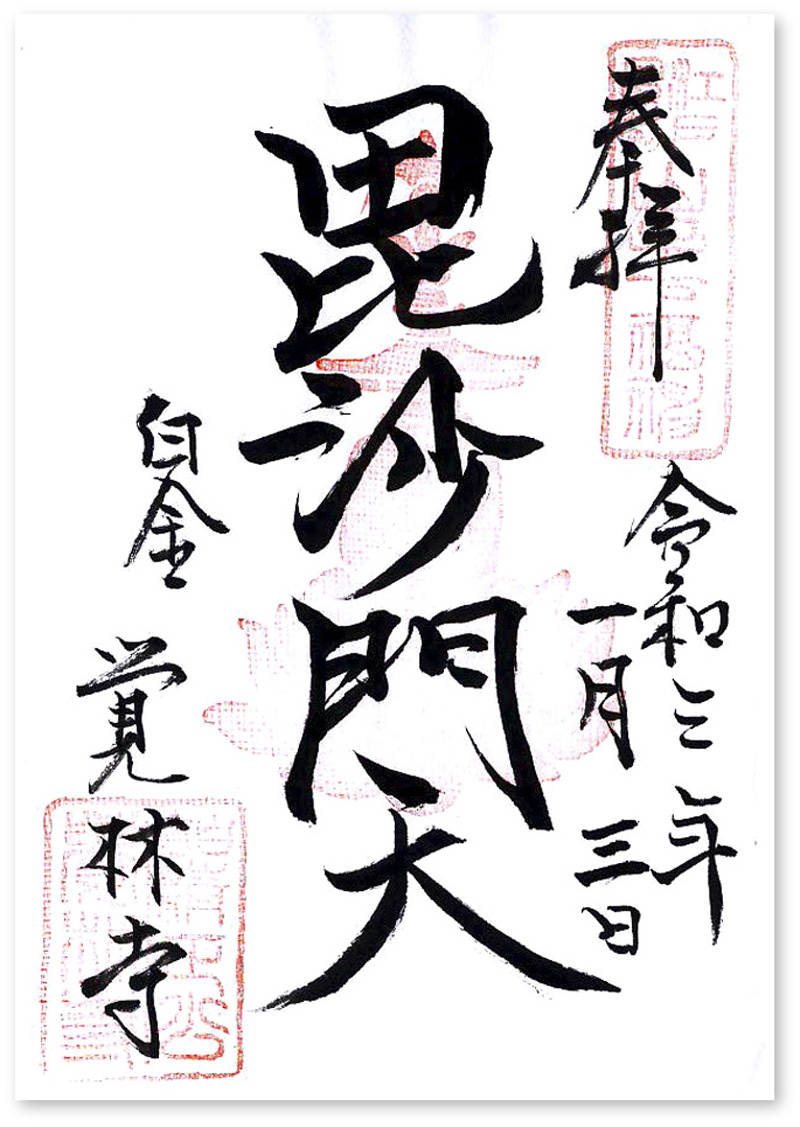 奉拝
令和三年
一月三日
毘沙門天
白金 覚林寺